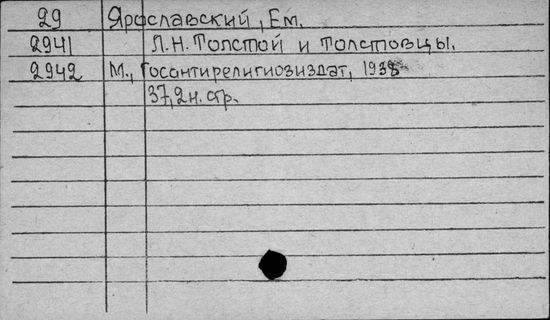 29 Ярославский, Ем.
2941 Л.Н. Толстой и толстовцы.
2942 М., Госантирелигиозиздат, 1938
37, 2н. стр.